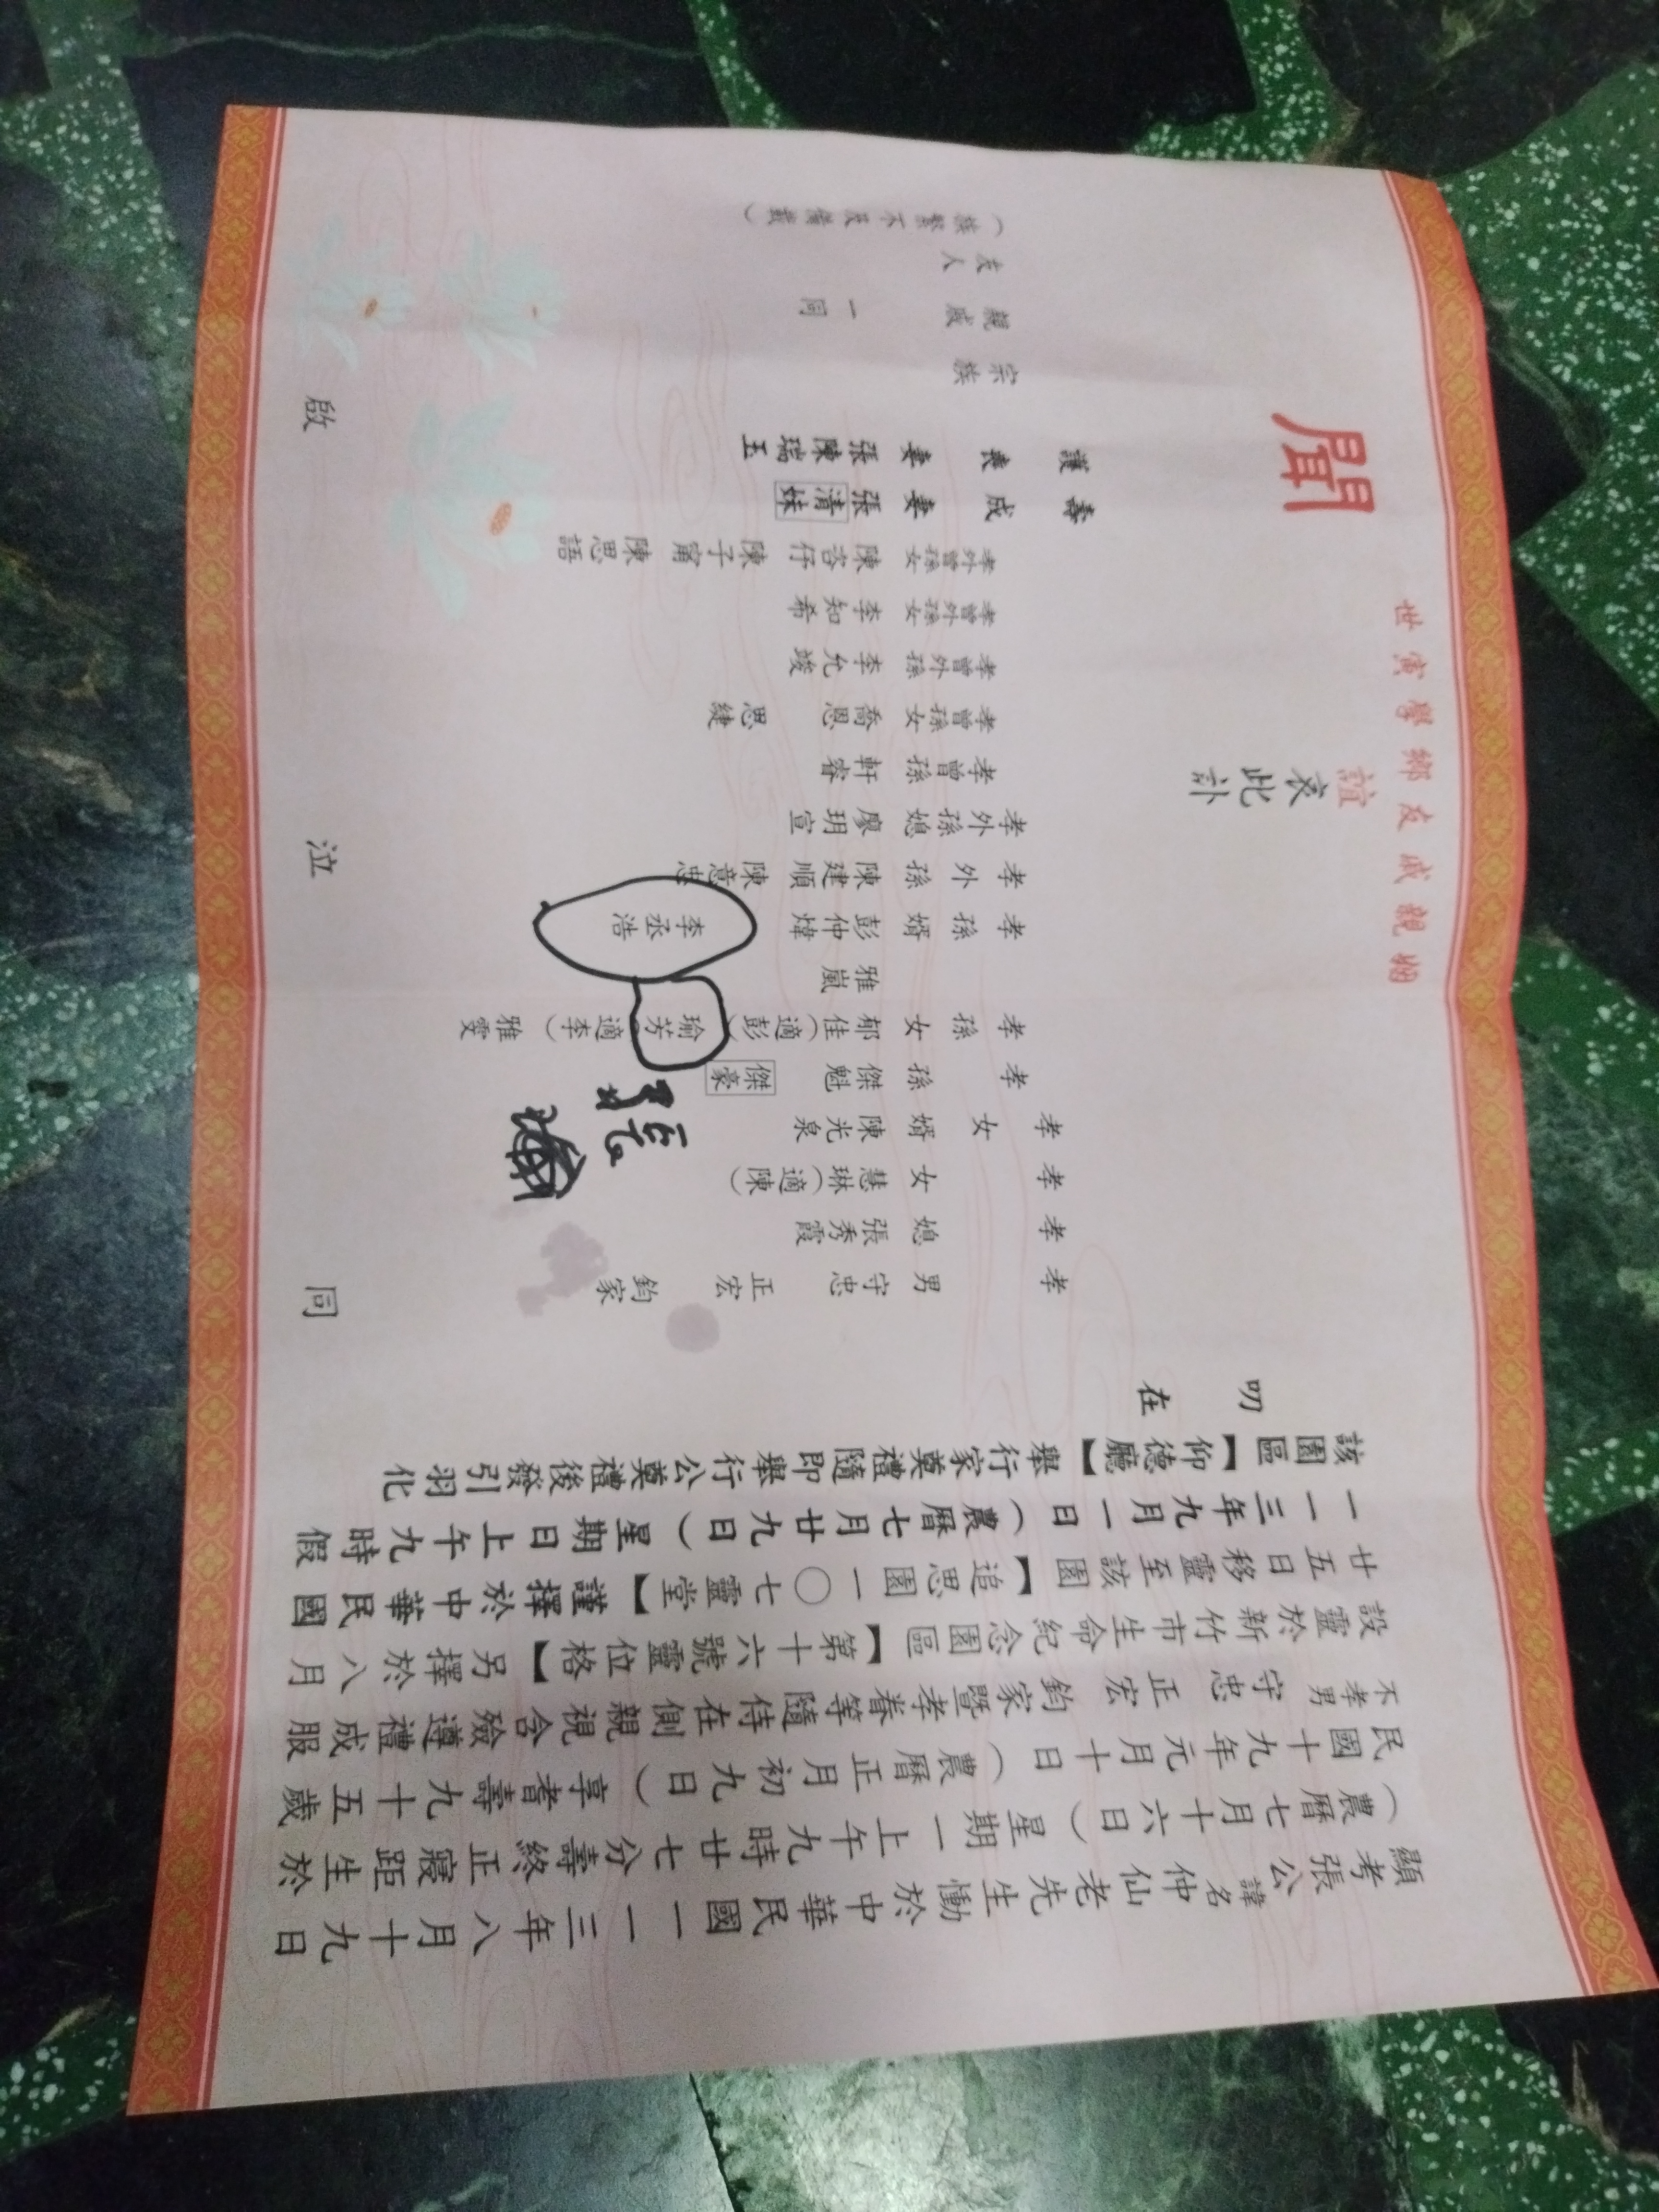 顯考張公諱名仲仙老先生慟於中華民國一一三年八月十九日
(農曆七月十六日)星期一上午九時廿七分壽終正寢距生於
民國十九年元月十日(農曆正月初九日)享耆壽九十五歲
不孝男守忠 正宏 鈞家暨孝眷等隨侍在側親視含殮遵禮成服
設靈於新竹市生命紀念園區【第十六號靈位格】另擇於八月
廿五日移靈至該園【追思園一〇七靈堂】謹擇於中華民國
一一三年九月一日(農曆七月廿九日)星期日上午九時假
該園區【仰德廳】舉行家奠禮隨即舉行公奠禮後發引羽化
叨
在
世寅學鄉友戚親姻
誼
哀
此訃
聞
孝男 守忠 正宏 鈞家
孝媳 張秀霞
孝女 慧琳(適陳)
孝女婿 陳光泉
孝孫 傑魁 傑豪
孝孫女 郁佳(適彭) 瑜芳(適李) 雅雯
雅嵐
孝孫婿 彭仲煒 李丞浩
孝外孫 陳建順 陳意忠
孝外孫媳 廖玥宣
孝曾孫 軒睿
孝曾孫女 喬恩 思緁
孝曾外孫 李允竣
孝曾外孫女 李知希
孝外曾孫女 陳咨伃 陳子甯 陳思語
壽成妻 張清妹
護喪妻 張陳瑞玉
宗族
親戚 一同
友人
(族繁不及備載)
同 泣 啟